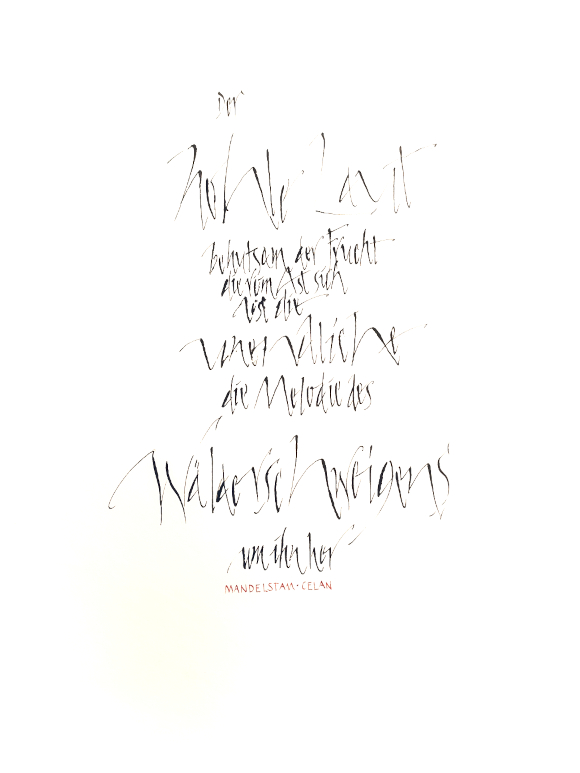 Der
hohle Laut
behutsam der Frucht
die vom Ast sich
löst die
unendliche
die Melodie des
Wälderschweigens
um ihn her
MANDELSTAM·CELAN